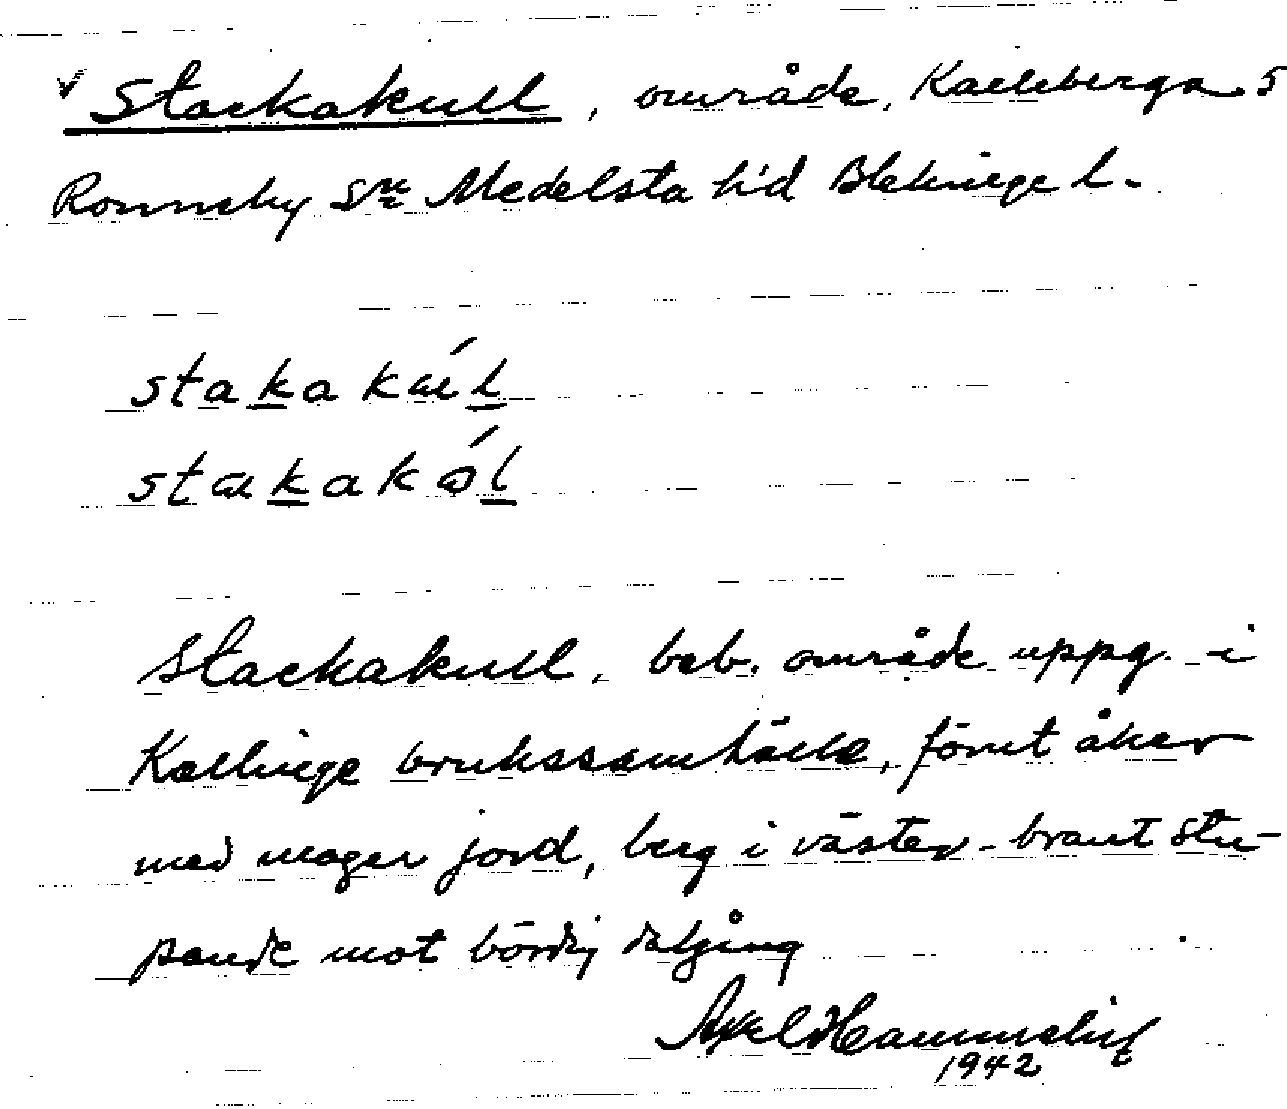 Stackakull, område, Kalleberga 5
Ronneby sn Medelsta hd Blekinge l.
stakakul
stakakol
Stackakull, beb. område uppg. i
Kallinge brukssamhälle, förut åker
med mager jord, berg i väster - brant stu-
pande mot bördig dalgång
Axel
1942